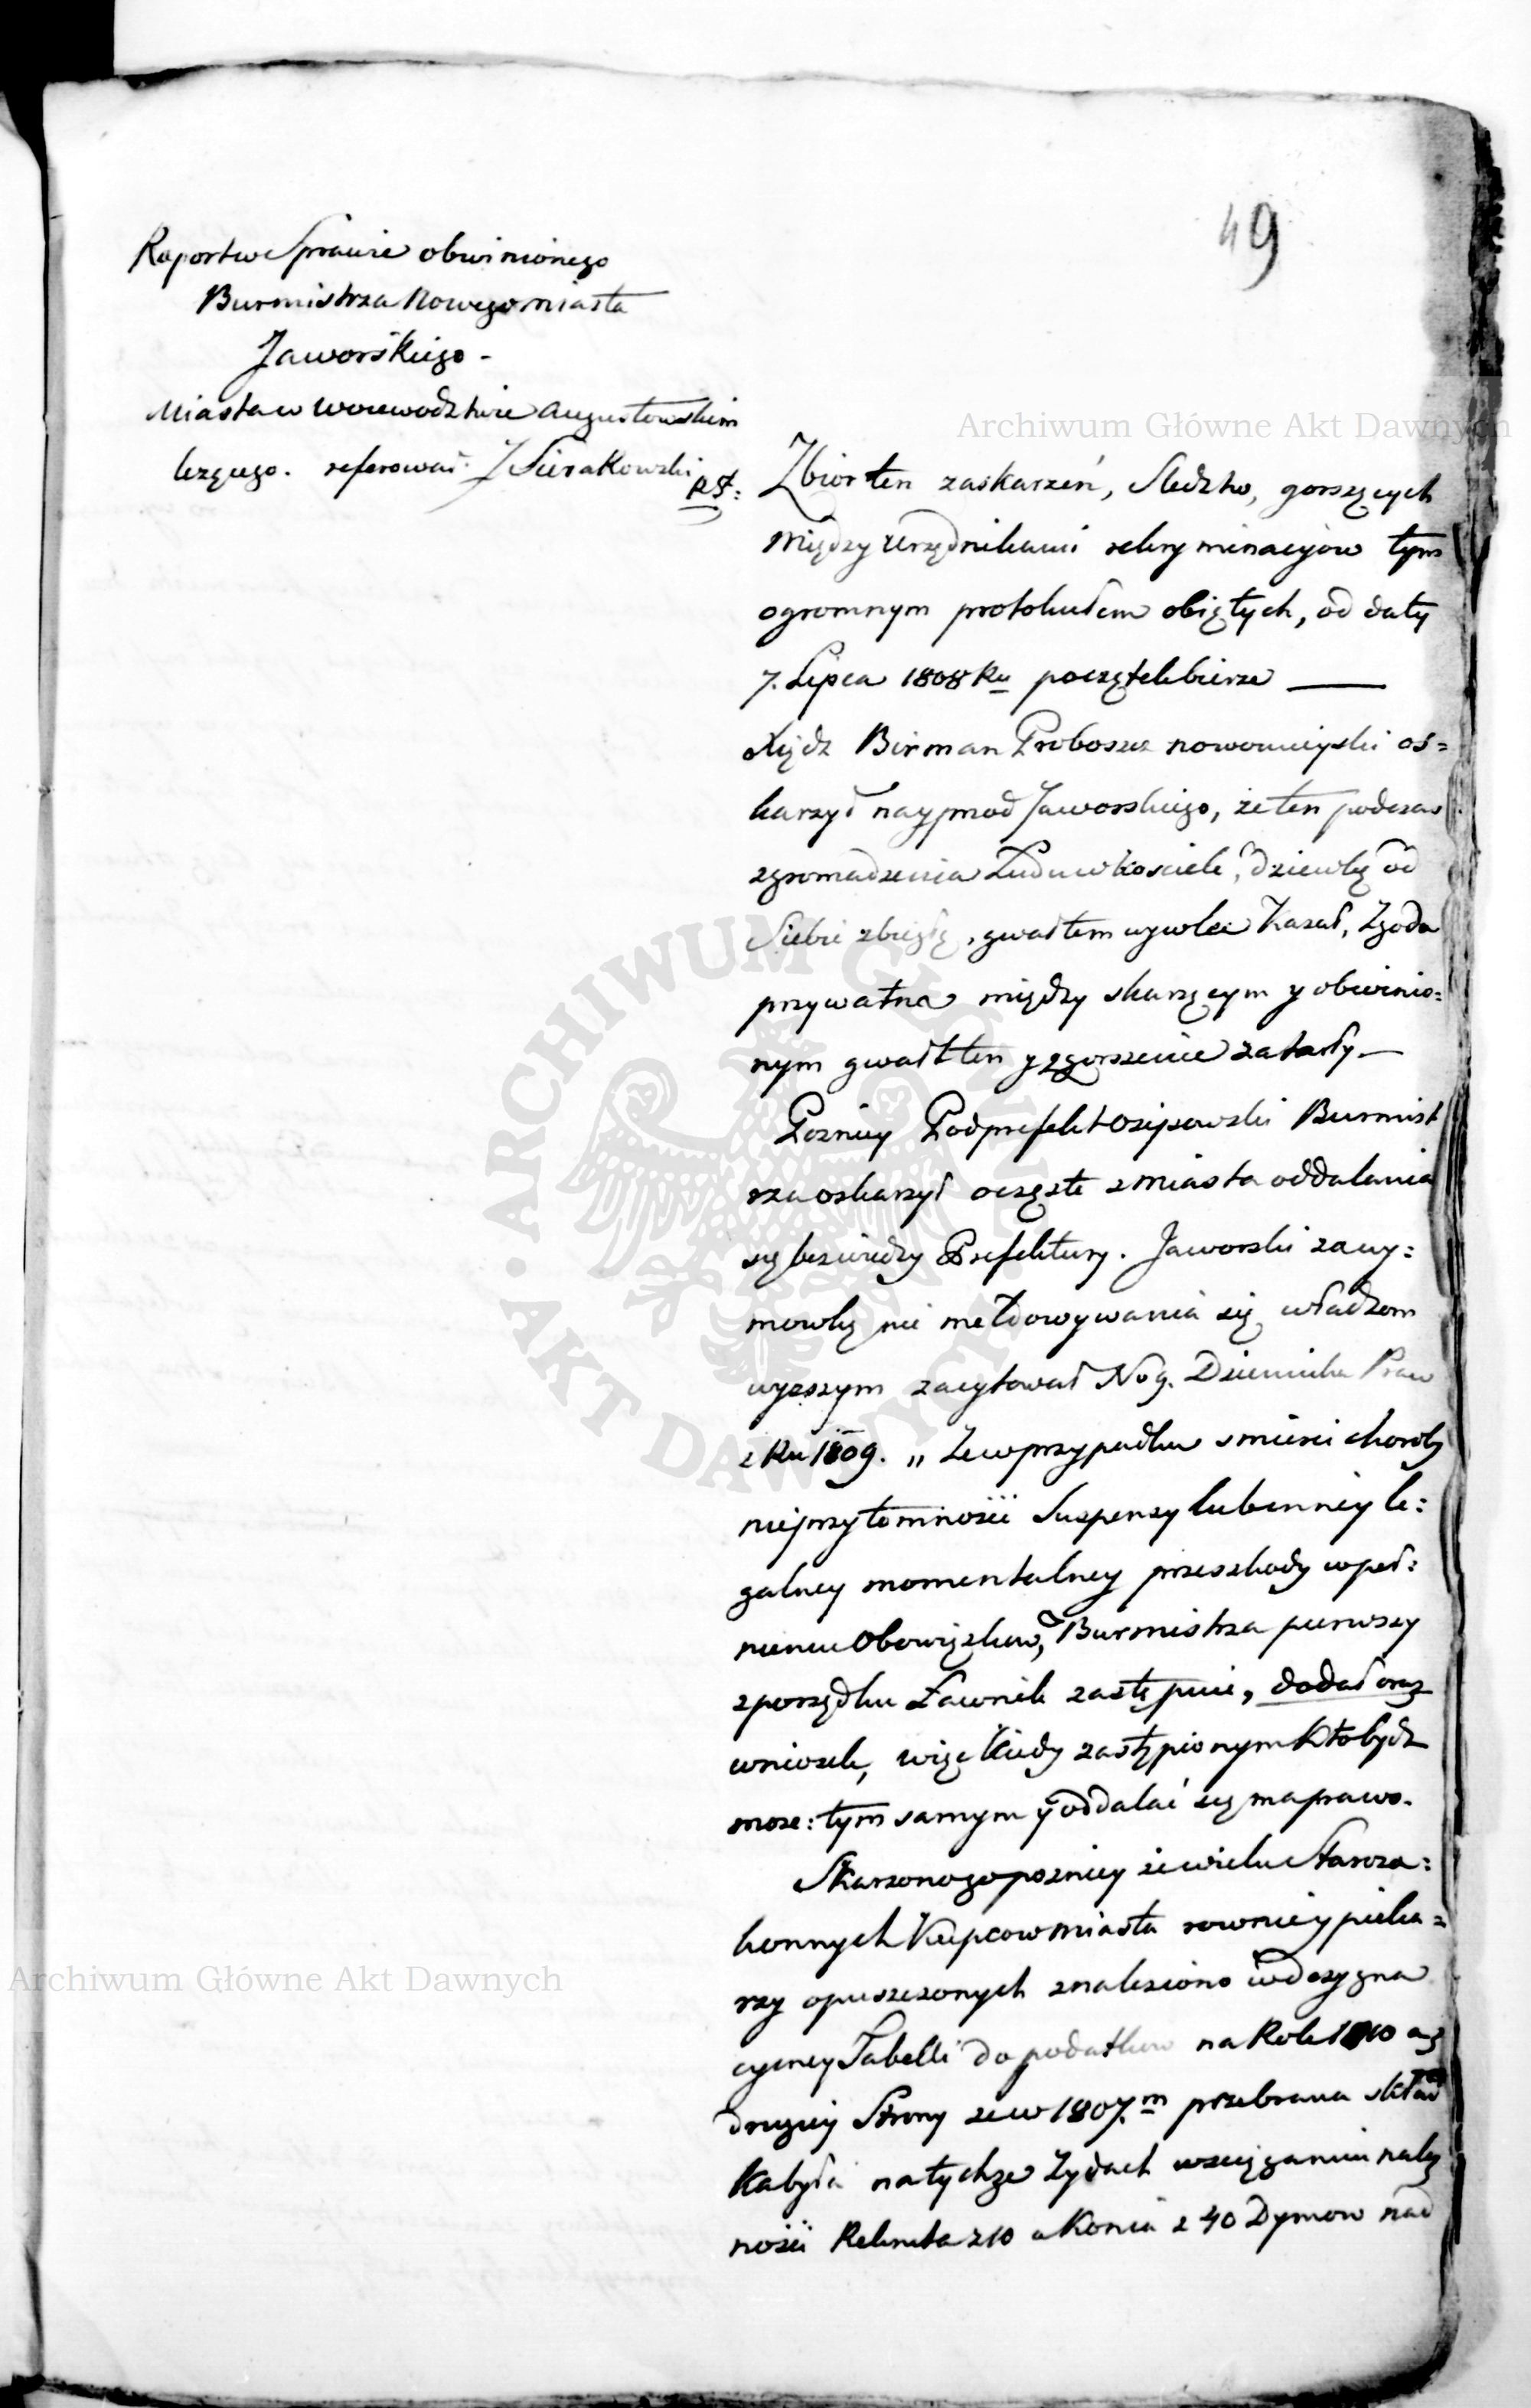 49
Raport w Sprawie obwinionego
Burmistrza Nowegomiasta
Jaworskiego -
Miasta w Woiewodztwie Augustowskim
leżącego. referował J Sierakowski
RS:
Zbior ten zaskarzeń, Sledztw, gorszących
Między Urzędnikami rekryminacyiow tym
ogromnym protokułem obiętych, od daty
7. Lipca 1808 Ru początek bierze —
Xiądz Birman Proboszcz nowomieyski os=
karzył nayprzod Jaworskiego, że ten podczas
zgromadzenia Ludu w kosciele, dziewkę od
Siebie zbiegłą, gwałtem wywlec Kazał, Zgoda
prywatna między skarzącym y obwinio=
nym gwałt ten y zgorszenie zatarły —
Pozniey Podprefekt Osipowski Burmist
rza oskarzył o częste z miasta oddalania
się bez wiedzy Prefektury. Jaworski za wy=
mowkę nie meldowywania się władzom
wyzszym zacytował No 9. Dziennika Praw
z Ru 1809. „ Ze w przypadku smierci choroby
nieprzytomności Suspensy lub inney le=
galney momentalney przeszkody w peł=
nieniu Obowiązkow, Burmistrza pierwszy
z porządku Ławnik zastępuie, dodał oraz
wniosek, więc kiedy zastąpionym kto bydz
moze: tym samym y oddalać się ma prawo.
Skarzono go pozniey ze wielu Staroza=
konnych Kupcow miasta rowniey pieka=
rzy opuszczonych znaleziono w desygna
cyiney Tabelli do podatkow na Rok 1810 a z
drugiey Strony ze w 1807.m przebrana skład
ka była na tychze Zydach w sciąganiu należ
ności Rekruta z 10 a Konia z 40 Dymow nad
Archiwum Główne Akt Dawnych
Archiwum Główne Akt Dawnych
ARCHIWUM GŁÓWNE • AKT DAWNYCH •